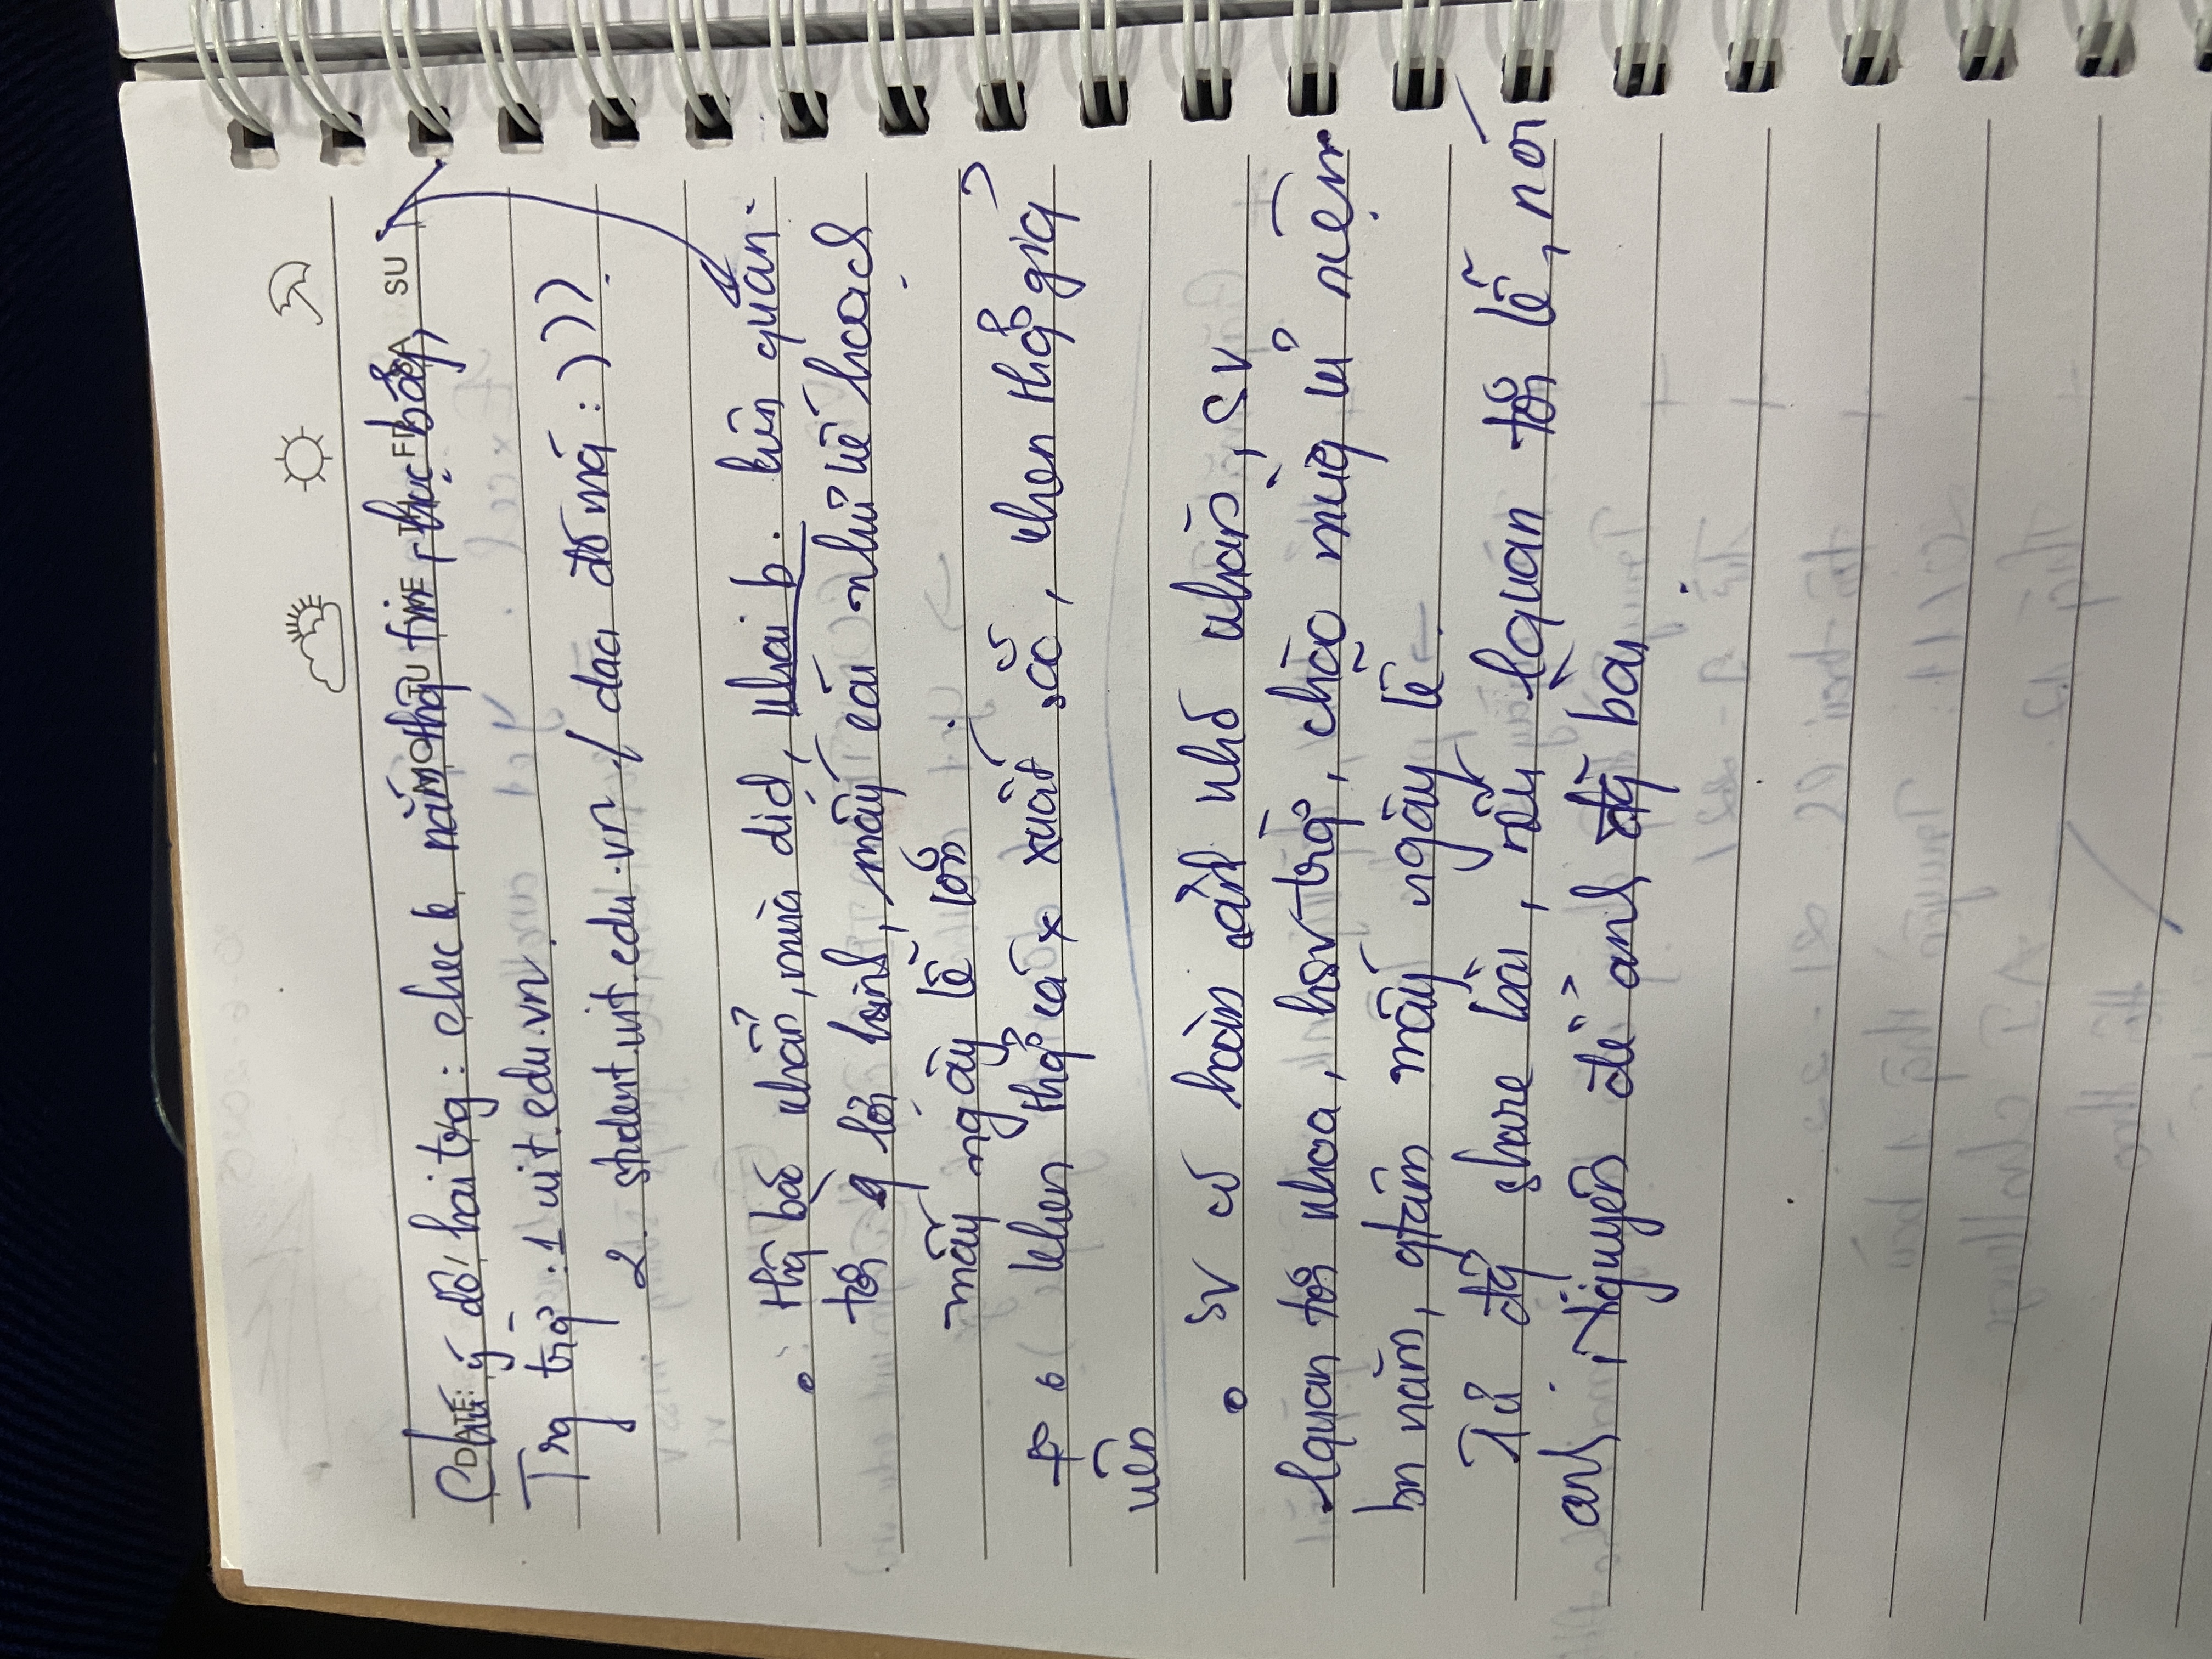 MO TU WE TH FR SA SU
DATE:
Chú ý đô hai trg: check nắm thg tin, học bổg,
Trg trg: 1 uit.edu.vn.
2. student.uit.edu.vn / daa đồ má :)))
thg báo khẩn, mùa dịch, khai b. liên quan
tới g lợi hành, mấy cái như kế hoạch
mấy ngày lễ lớn
+ Khen thg cá x xuất sắc, khen thg giả
viên
SV có hoàn cảnh khó khăn, SV
lquan tới khoa, hsv trg, chào mừg kỉ niệm
bn năm, gtâm mấy ngày lễ
Tự độg share bài, nếu lquan tới lễ, nói
anh Nguyên để anh đg bài